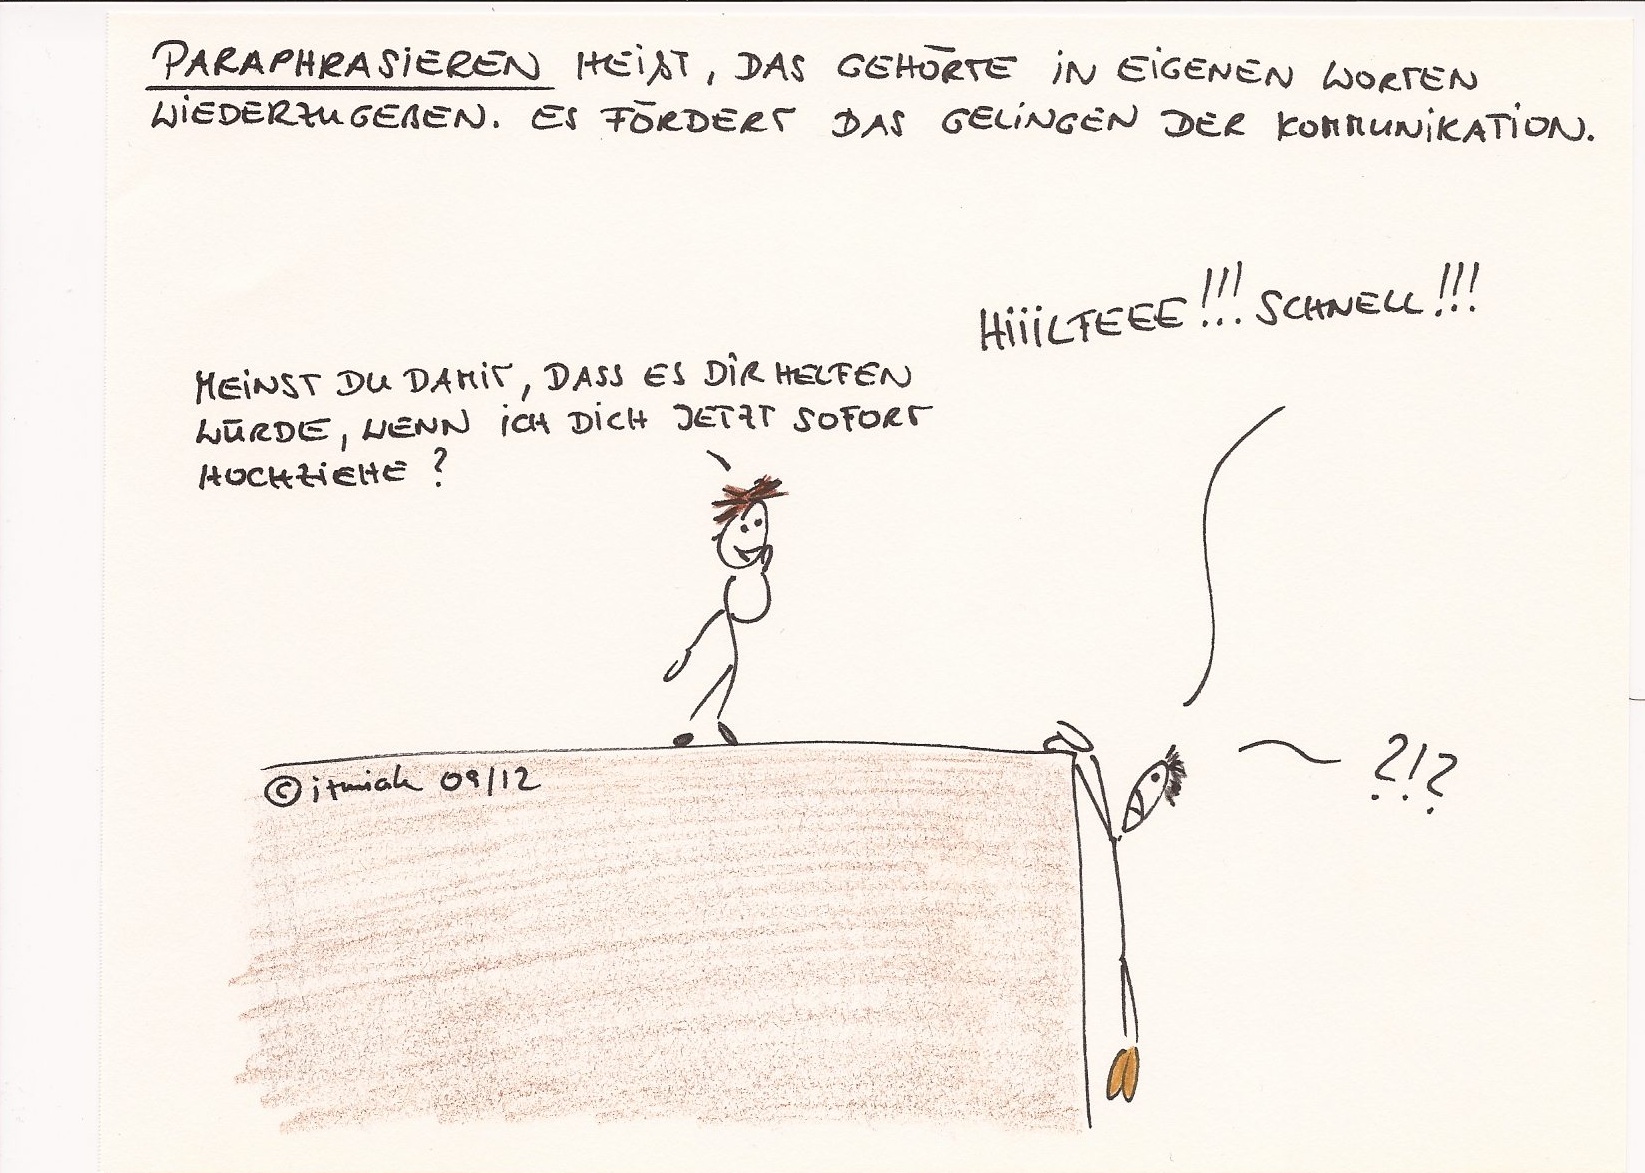 PARAPHRASIEREN HEIßT, DAS GEHÖRTE IN EIGENEN WORTEN
WIEDERZUGEBEN. ES FÖRDERT DAS GELINGEN DER KOMMUNIKATION.
HiiiLFEEE!!! SCHNELL!!!
MEINST DU DAMIT, DASS ES DIR HELFEN
WÜRDE, WENN ICH DICH JETZT SOFORT
HOCHZIEHE?
?!?
© itmiak 09/12